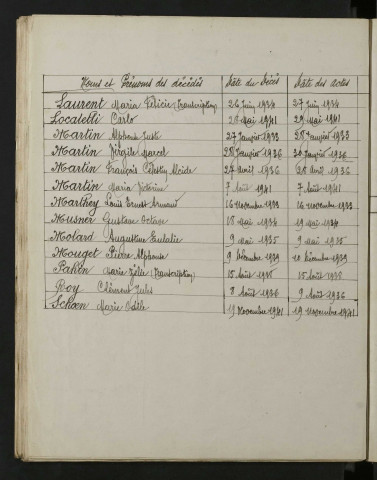 Noms et Prénoms des décédés Date du Décès Date des Actes
Laurent Marie Félicie (Transcription) 26 Juin 1934 27 Juin 1934
Locatelli Carlo 28 Mai 1941 29 Mai 1941
Martin Alphonse Juste 27 Janvier 1933 28 Janvier 1933
Martin Virgile Marcel 28 Janvier 1936 30 Janvier 1936
Martin François Célestin Alcide 27 Avril 1936 28 Avril 1936
Martin Marie Victorine 7 Août 1941 7 Août 1941
Marthey Louis Ernest Armand 16 Novembre 1933 16 Novembre 1933
Musner Gustave Octave 18 Mai 1934 19 Mai 1934
Molard Augustine Eulalie 9 Mai 1935 9 Mai 1935
Mouget Pierre Alphonse 9 Décembre 1939 11 Décembre 1939
Marie Zélie (Transcription) 15 Août 1938 15 Août 1938
Roy Clément Jules 8 Août 1936 9 Août 1936
Schoen Marie Odile 19 Novembre 1941 19 Novembre 1941